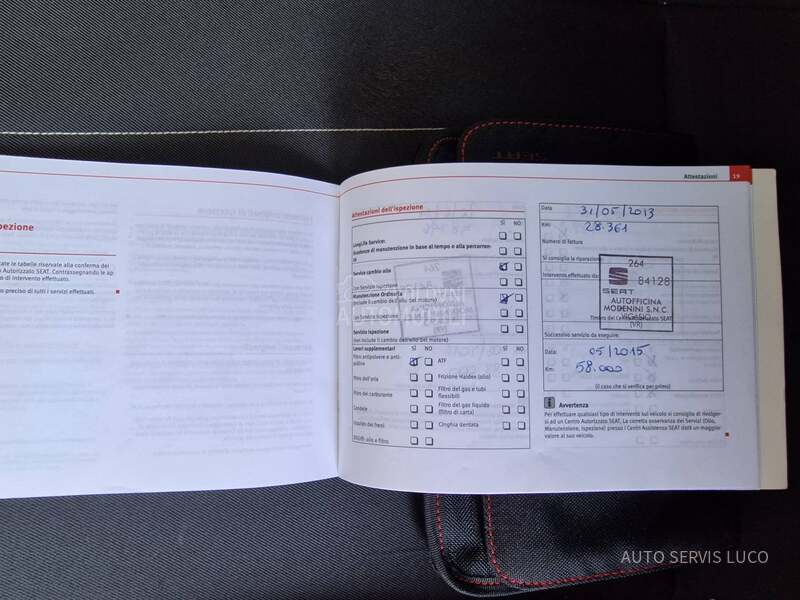 pezione
ate le tabelle riservate alla conferma dei
o Autorizzato SEAT. Contrassegnando le ap
o di intervento effettuato.
o preciso di tutti i servizi effettuati.
Attestazioni 19
Attestazioni dell'ispezione
SÌ NO
LongLife Service:
Scadenze di manutenzione in base al tempo o alla percorren-
Service cambio olio
Manutenzione Ordinaria
(include il cambio dell'olio del motore)
Con Service Ispezione
Service Ispezione
(non include il cambio dell'olio del motore)
Lavori supplementari SÌ NO SÌ NO
Filtro antipolvere e anti- ATF
polline
Filtro dell'aria Frizione Haldex (olio)
Filtro del carburante Filtro del gas e tubi
flessibili
Candele Filtro del gas liquido
(filtro di carta)
Liquido dei freni Cinghia dentata
Haldex, olio e filtro
Data 31/05/2013
Km: 28.361
Numero di fattura
Si consiglia la riparazione:
Intervento effettuato da:
264
84128
SEAT
AUTOFFICINA
MODENINI S.N.C.
VIGASIO
(VR)
Timbro del Centro Autorizzato SEAT
Successivo servizio da eseguire:
Data: 05/2015
Km: 58.000
(il caso che si verifica per primo)
Avvertenza
Per effettuare qualsiasi tipo di intervento sul veicolo si consiglia di rivolger-
si ad un Centro Autorizzato SEAT. La corretta osservanza dei Servizi (Olio,
Manutenzione, Ispezione) presso i Centri Assistenza SEAT darà un maggior
valore al suo veicolo.
POLOVNI
AUTOMOBILI
AUTO SERVIS LUCO